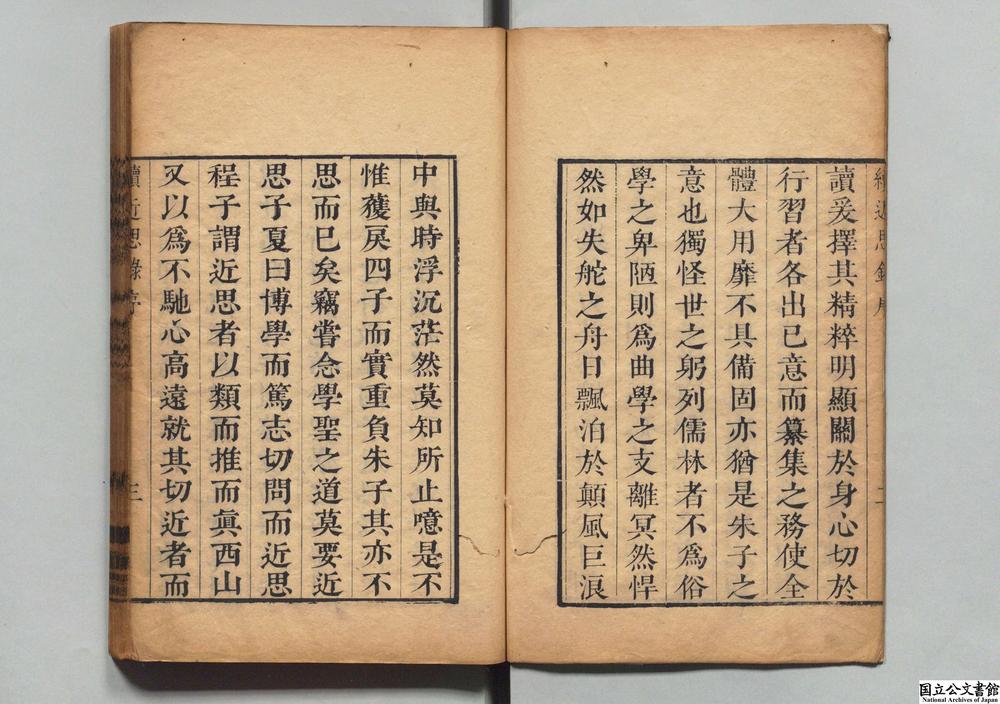 續近思錄序
二
讀爰擇其精粹明顯關於身心切於
行習者各出已意而纂集之務使全
體大用靡不具備固亦猶是朱子之
意也獨怪世之躬列儒林者不爲俗
學之卑陋則爲曲學之支離冥然悍
然如失舵之舟日飄泊於顛風巨浪
中與時浮沉茫然莫知所止噫是不
惟獲戾四子而實重負朱子其亦不
思而已矣竊嘗念學聖之道莫要近
思子夏曰博學而篤志切問而近思
程子謂近思者以類而推而眞西山
又以爲不馳心高遠就其切近者而
續近思錄序
三
国立公文書館
National Archives of Japan